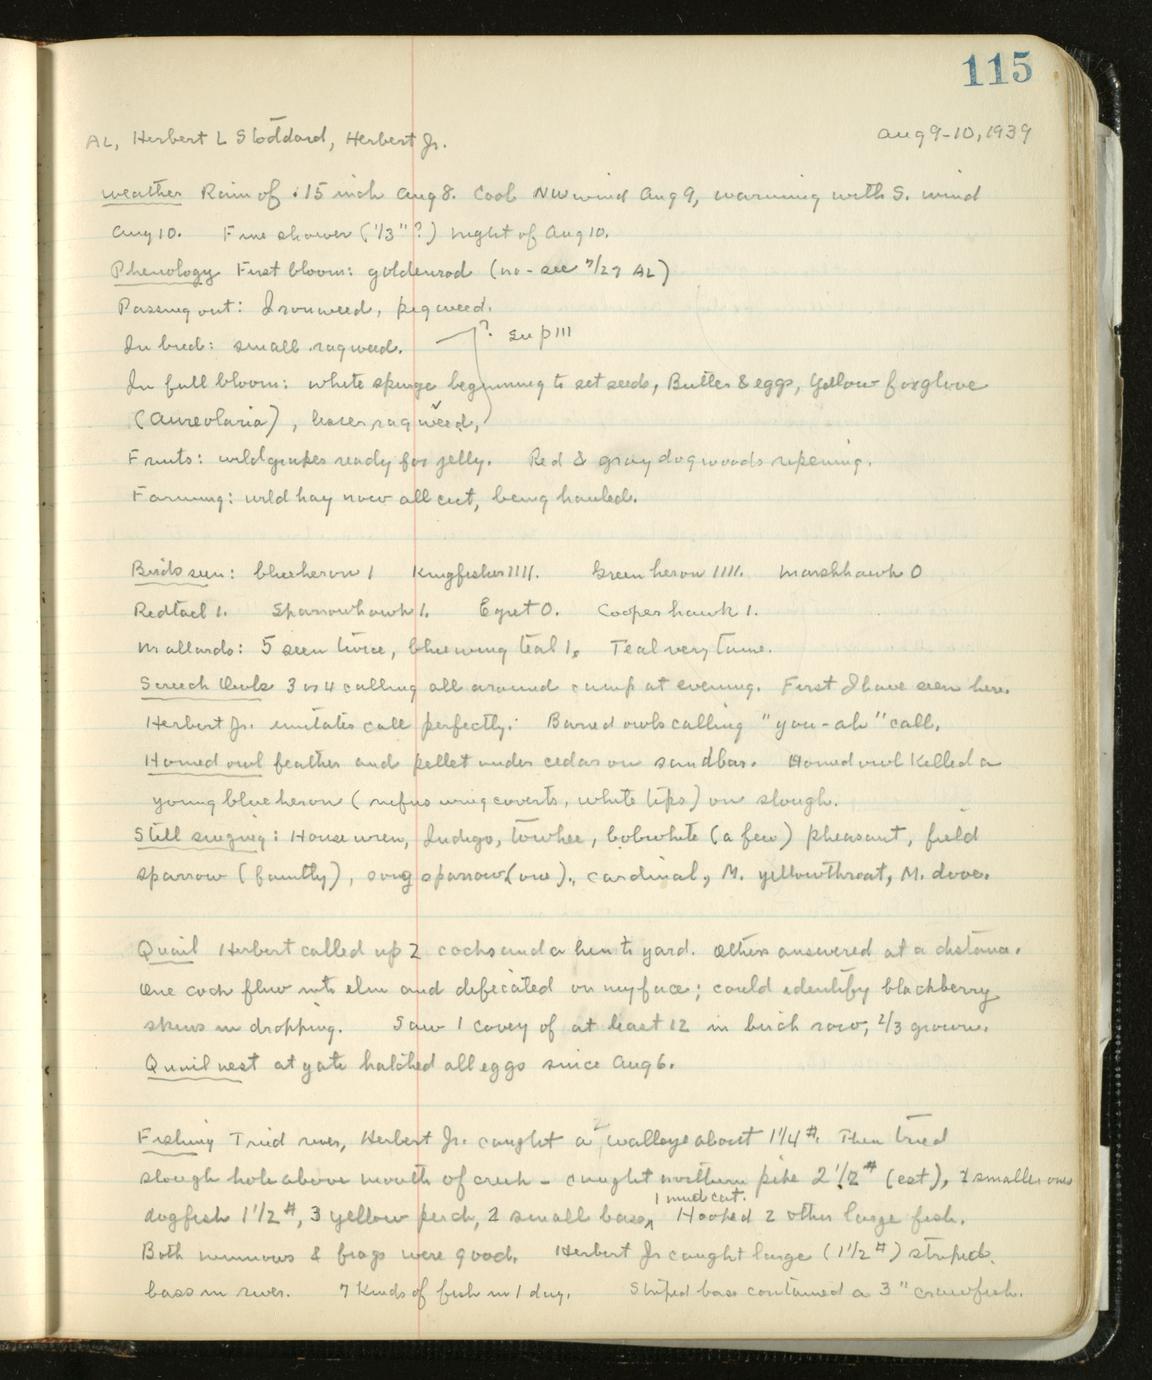 115
AL, Herbert L Stoddard, Herbert Jr. Aug 9-10, 1939
Weather Rain of .15 inch Aug 8. Cool NW wind Aug 9, warming with S. wind
Aug 10. Fine shower (1/3" ?) night of Aug 10.
Phenology First bloom: goldenrod (no - see 7/27 AL)
Passing out: Ironweed, pigweed.
In bud: small ragweed. ? See p 111
In full bloom: white spurge beginning to set seeds, Butter & eggs, Yellow foxglove
(Aureolaria), lesser ragweed,
Fruits: wildgrapes ready for jelly. Red & gray dogwoods ripening.
Farming: wild hay now all cut, being hauled.
Birds seen: blue heron 1 Kingfisher 1111. Green heron 1111. Marshhawk 0
Redtail 1. Sparrowhawk 1. Egret 0. Cooper hawk 1.
Mallards: 5 seen twice, bluewing teal 1. Teal very tame.
Screech Owls 3 or 4 calling all around camp at evening. First I have seen here.
Herbert Jr. imitates call perfectly. Barred owls calling "you-ah" call.
Horned owl feather and pellet under cedar on sandbar. Horned owl killed a
young blue heron (rufus wing coverts, white tips) on slough.
Still singing: House wren, Indigo, towhee, bobwhite (a few) pheasant, field
sparrow (faintly), song sparrow (one), cardinal, M. yellowthroat, M. dove.
Quail Herbert called up 2 cocks and a hen to yard. Others answered at a distance.
One cock flew into elm and defecated on my face; could identify blackberry
skins in dropping. Saw 1 covey of at least 12 in birch row, 2/3 grown.
Quail nest at gate hatched all eggs since Aug 6.
Fishing Tried river, Herbert Jr. caught a walleye about 1 1/4 #. Then tried
slough hole above mouth of creek - caught northern pike 2 1/2 # (est), 2 smaller ones
1 mud cat.
dogfish 1 1/2 #, 3 yellow perch, 2 small bass, Hooked 2 other large fish.
Both minnows & frogs were good. Herbert Jr caught large (1 1/2 #) striped
bass in river. 7 kinds of fish in 1 day. Striped bass contained a 3" crawfish.